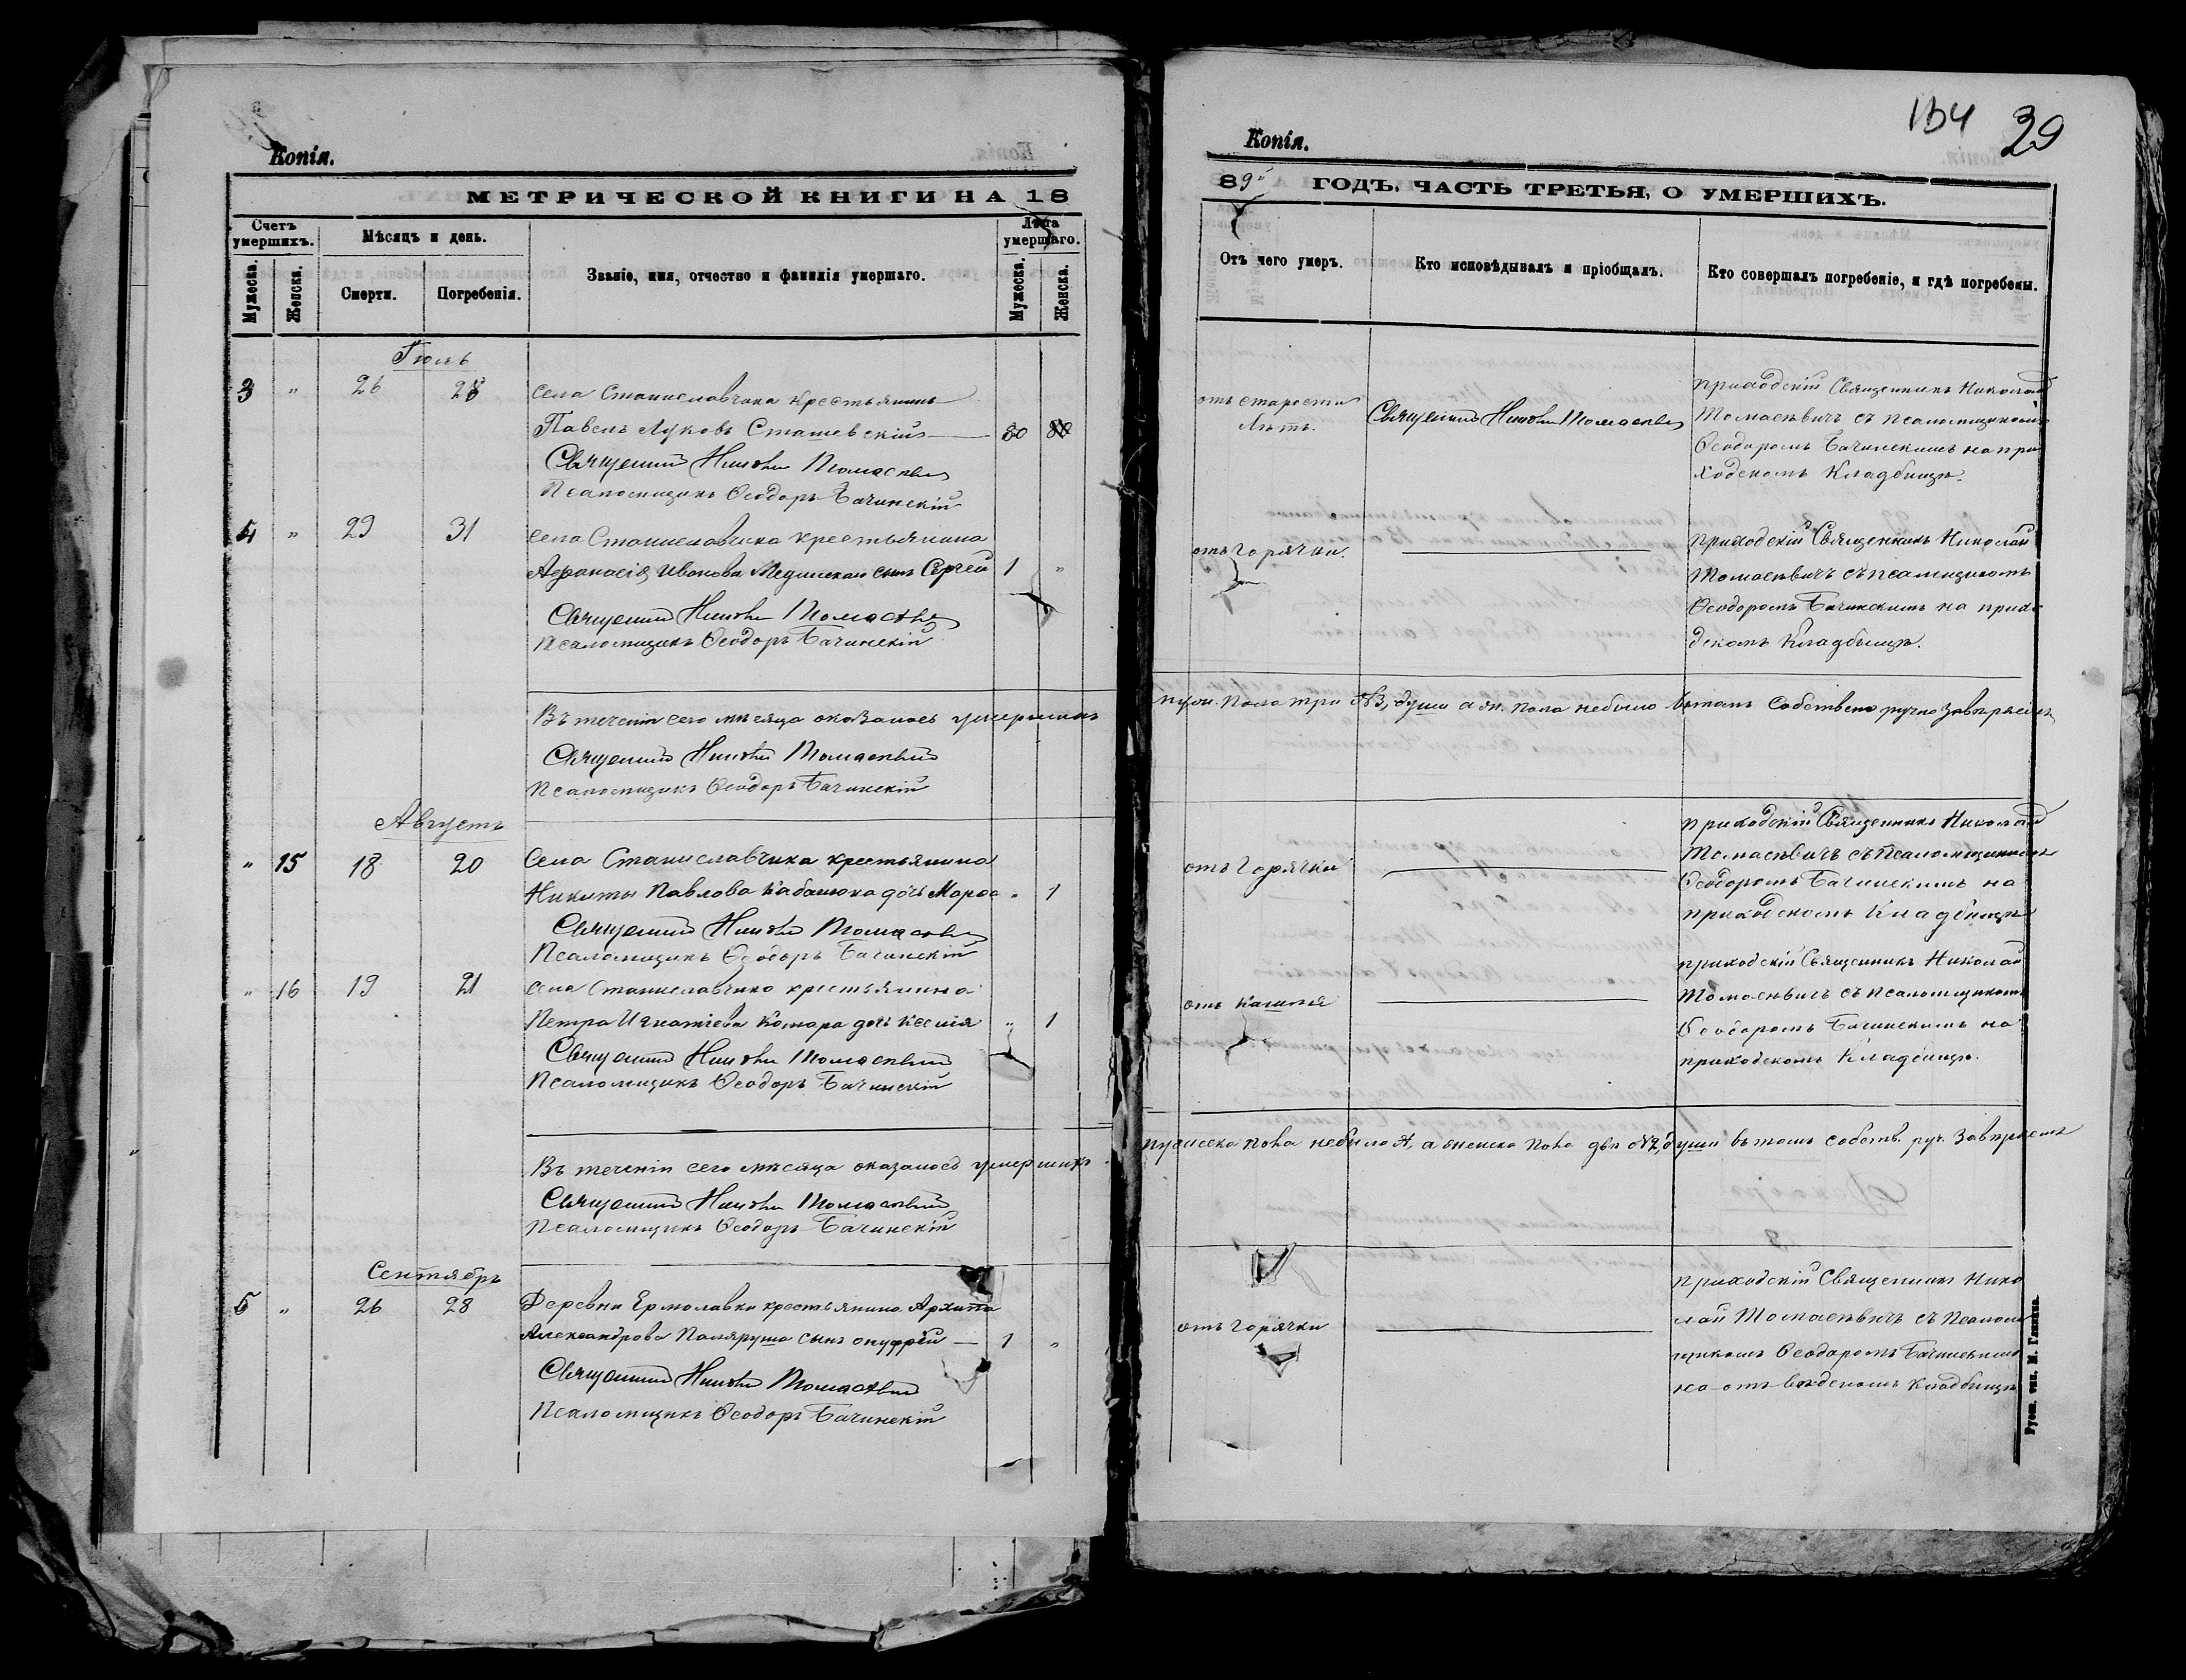 Копія.
МЕТРИЧЕСКОЙ КНИГИ НА 18
Счетъ умершихъ.
Мѣсяцъ и день.
Званіе, имя, отчество и фамилія умершаго.
Лѣта умершаго.
Мужеска.
Женска.
Смерти.
Погребенія.
Мужеска.
Женска.
Іюль
3 " 26 28 Села Станиславчика крестьянинъ
Павелъ Луковъ Сташевскій 80
Священникъ Николай Томасевич
Псаломщикъ Ѳеодоръ Бачинскій
4 " 29 31 Села Станиславчика крестьянина
Афанасія Иванова сынъ Сергей 1 "
Священникъ Николай Томасевич
Псаломщикъ Ѳеодоръ Бачинскій
Въ теченіи сего мѣсяца оказалось умершихъ
Священникъ Николай Томасевич
Псаломщикъ Ѳеодоръ Бачинскій
Августъ
" 15 18 20 Села Станиславчика крестьянина
Никиты Павлова дочь " 1
Священникъ Николай Томасевич
Псаломщикъ Ѳеодоръ Бачинскій
" 16 19 21 Села Станиславчика крестьянина
Петра Игнатіева Комара дочь Ксенія " 1
Священникъ Николай Томасевич
Псаломщикъ Ѳеодоръ Бачинскій
Въ теченіи сего мѣсяца оказалось умершихъ
Священникъ Николай Томасевич
Псаломщикъ Ѳеодоръ Бачинскій
Сентябрь
5 " 26 28 Деревни Ермолавки крестьянина Архипа
Александрова сынъ Онуфрій — 1 "
Священникъ Николай Томасевич
Псаломщикъ Ѳеодоръ Бачинскій
134 39
Копія.
89 ГОДЪ, ЧАСТЬ ТРЕТЬЯ, О УМЕРШИХЪ.
Отъ чего умеръ.
Кто исповѣдывалъ и пріобщалъ.
Кто совершалъ погребеніе, и гдѣ погребены.
отъ старости
лѣтъ.
Священникъ Николай Томасевич
приходскій Священникъ Николай
Томасевичъ съ псаломщикомъ
Ѳеодоромъ Бачинскимъ на при
ходскомъ кладбищѣ.
отъ горячки.
приходскій Священникъ Николай
Томасевичъ съ псаломщикомъ
Ѳеодоромъ Бачинскимъ на прихо
дскомъ кладбищѣ.
пола три души а жен. пола небыло въ томъ собственно ручно завѣряемъ
отъ горячки
приходскій Священникъ Николай
Томасевичъ съ псаломщикомъ
Ѳеодоромъ Бачинскимъ на
приходскомъ кладбищѣ
отъ кашля
приходскій Священникъ Николай
Томасевичъ съ псаломщикомъ
Ѳеодоромъ Бачинскимъ на
приходскомъ кладбищѣ.
мужеска пола небыло а женска пола двѣ души въ томъ собств. руч. завѣряемъ
отъ горячки
приходскій Священникъ Нико
лай Томасевичъ съ псалом
щикомъ Ѳеодоромъ Бачинскимъ
на кладбищѣ